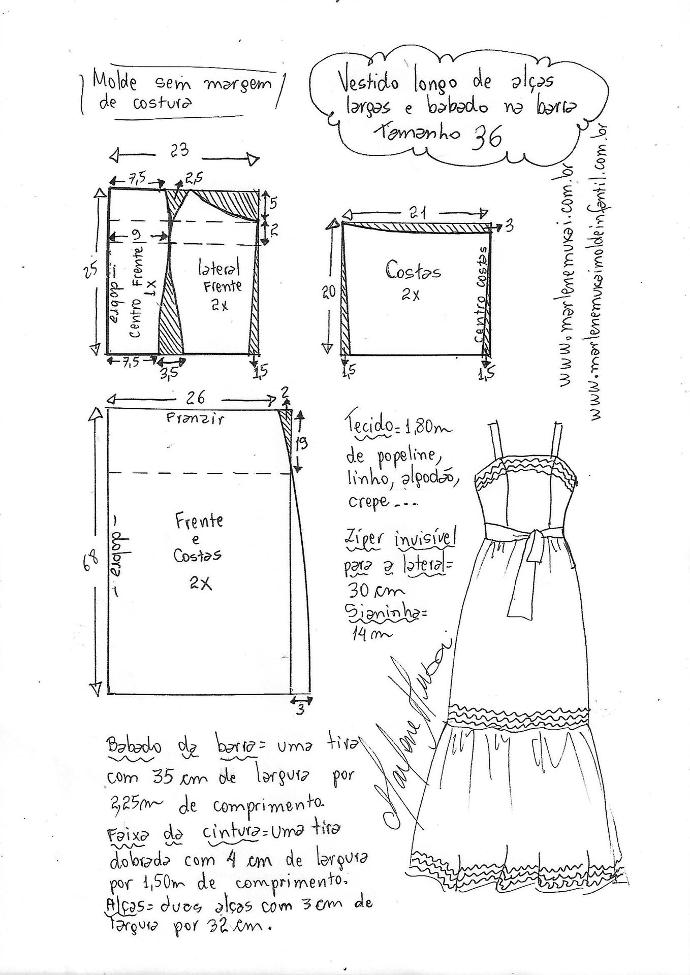 Molde sem margem
de costura
Vestido longo de alças
largas e babado na barra
Tamanho 36
www.marlenemukai.com.br
www.marlenemukaimoldeinfantil.com.br
23
7,5
2,5
5
2
9
25
dobra
Centro Frente
1x
lateral
Frente
2x
7,5
3,5
1,5
21
3
20
Costas
2x
Centro costas
1,5
1,5
26
2
Franzir
19
68
dobra
Frente
e
Costas
2X
3
Tecido=1,80m
de popeline,
linho, algodão,
crepe...
Zíper invisível
para a lateral=
30 cm
Sianinha=
14 m
Marlene Mukai
Babado da barra= uma tira
com 35 cm de largura por
2,25m de comprimento.
Faixa da cintura=Uma tira
dobrada com 4 cm de largura
por 1,50m de comprimento.
Alças= duas alças com 3 cm de
largura por 32 cm.